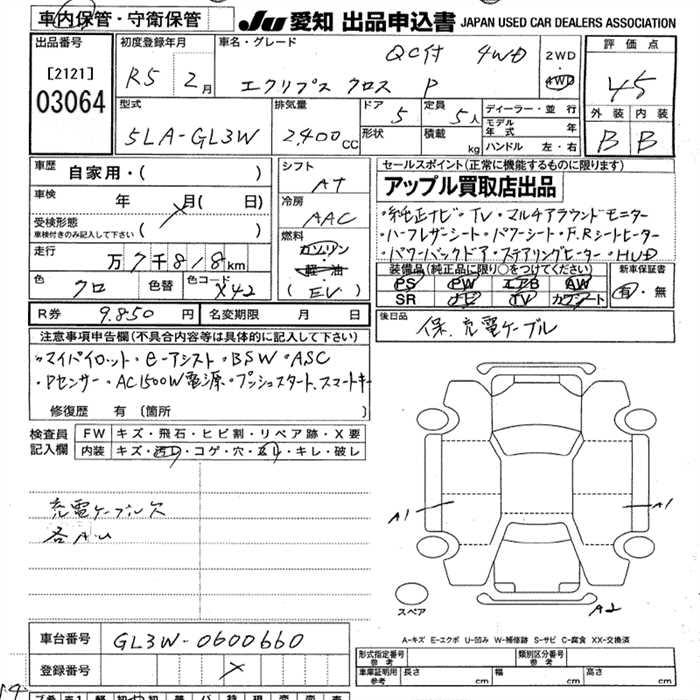 車内保管・守衛保管
JU 愛知 出品申込書 JAPAN USED CAR DEALERS ASSOCIATION
出品番号 初度登録年月 車名・グレード 評価点
[2121]
03064
R5 2月
QC付 4WD
エクリプス クロス P
2WD
4WD
4.5
型式 排気量 ドア 定員 ディーラー・並行 外装 内装
5LA-GL3W 2,400cc 5 5人
形状 積載 kg
モデル年式 年
ハンドル 左・右
B B
車歴 自家用・( )
シフト AT
セールスポイント(正常に機能するものに限ります)
アップル買取店出品
車検 年 月( 日)
受検形態
車検付きのみ記入して下さい
冷房 AAC
・純正ナビ・TV・マルチアラウンドモニター
・ハーフレザーシート・パワーシート・F.Rシートヒーター
・パワーバックドア・ステアリングヒーター・HUD
走行 万7千818km
燃料 ガソリン
軽・油
(EV)
装備品(純正品に限り○をつけてください) 新車保証書
PS PW エアB AW
SR ナビ TV カワシート
有・無
色 クロ 色替 色コード X42
R券 9.850円 名変期限 月 日
後日品 保.充電ケーブル
注意事項申告欄(不具合内容等は具体的に記入して下さい)
・マイパイロット・e-アシスト・BSW・ASC
・Pセンサー・AC1500W電源・プッシュスタート.スマートキー
修復歴 有(箇所
検査員記入欄 FW キズ・飛石・ヒビ割・リペア跡・X要
内装 キズ・汚れ・コゲ・穴・スレ・キレ・破レ
充電ケーブル欠
各A.U
A1
A1
スペア
A2
A-キズ E-エクボ U-凹み W-補修跡 S-サビ C-腐食 XX-交換済
車台番号 GL3W-0600660
登録番号
形式指定番号 参考 類別区分番号 参考
車庫証明用 参考 長さ cm 幅 cm 高さ cm